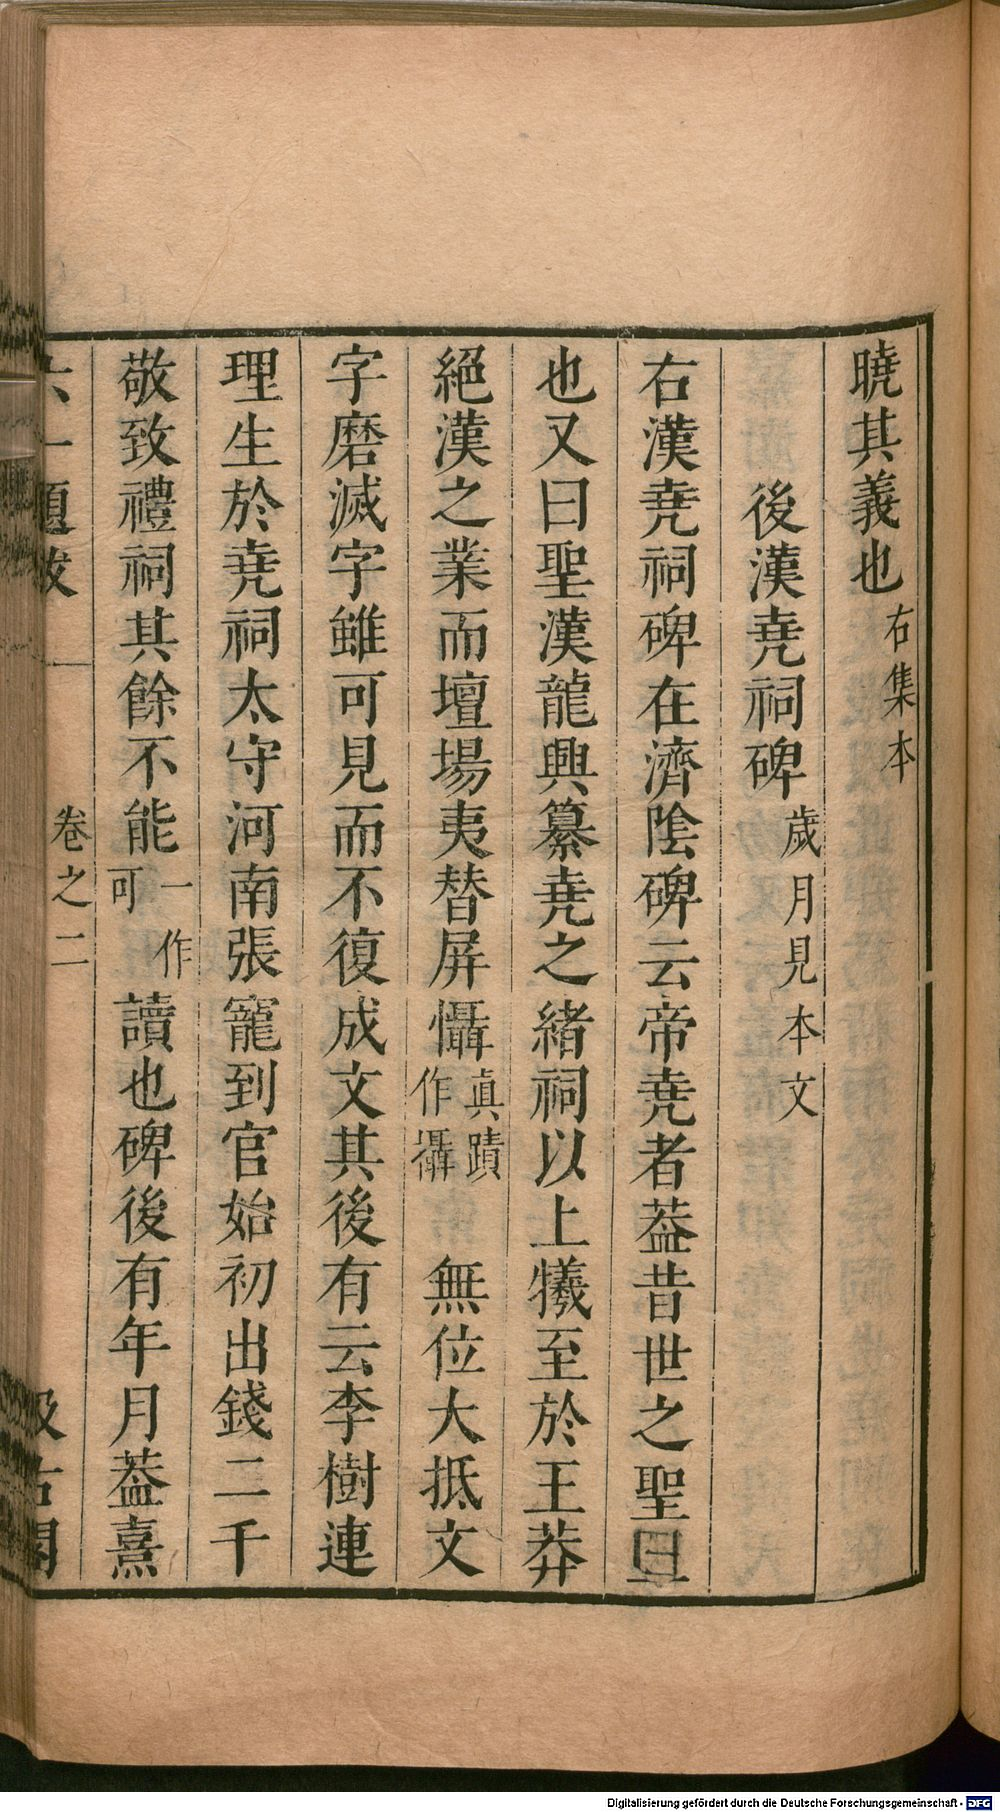 曉其義也右集本
後漢堯祠碑歲月見本文
右漢堯祠碑在濟陰碑云帝堯者葢昔世之聖
也又曰聖漢龍興纂堯之緒祠以上犧至於王莽
絕漢之業而壇場夷替屏懾真蹟作攝無位大抵文
字磨滅字雖可見而不復成文其後有云李樹連
理生於堯祠太守河南張寵到官始初出錢二千
敬致禮祠其餘不能一作可讀也碑後有年月葢熹
六一題跋 卷之二 汲古閣
Digitalisierung gefördert durch die Deutsche Forschungsgemeinschaft - DFG